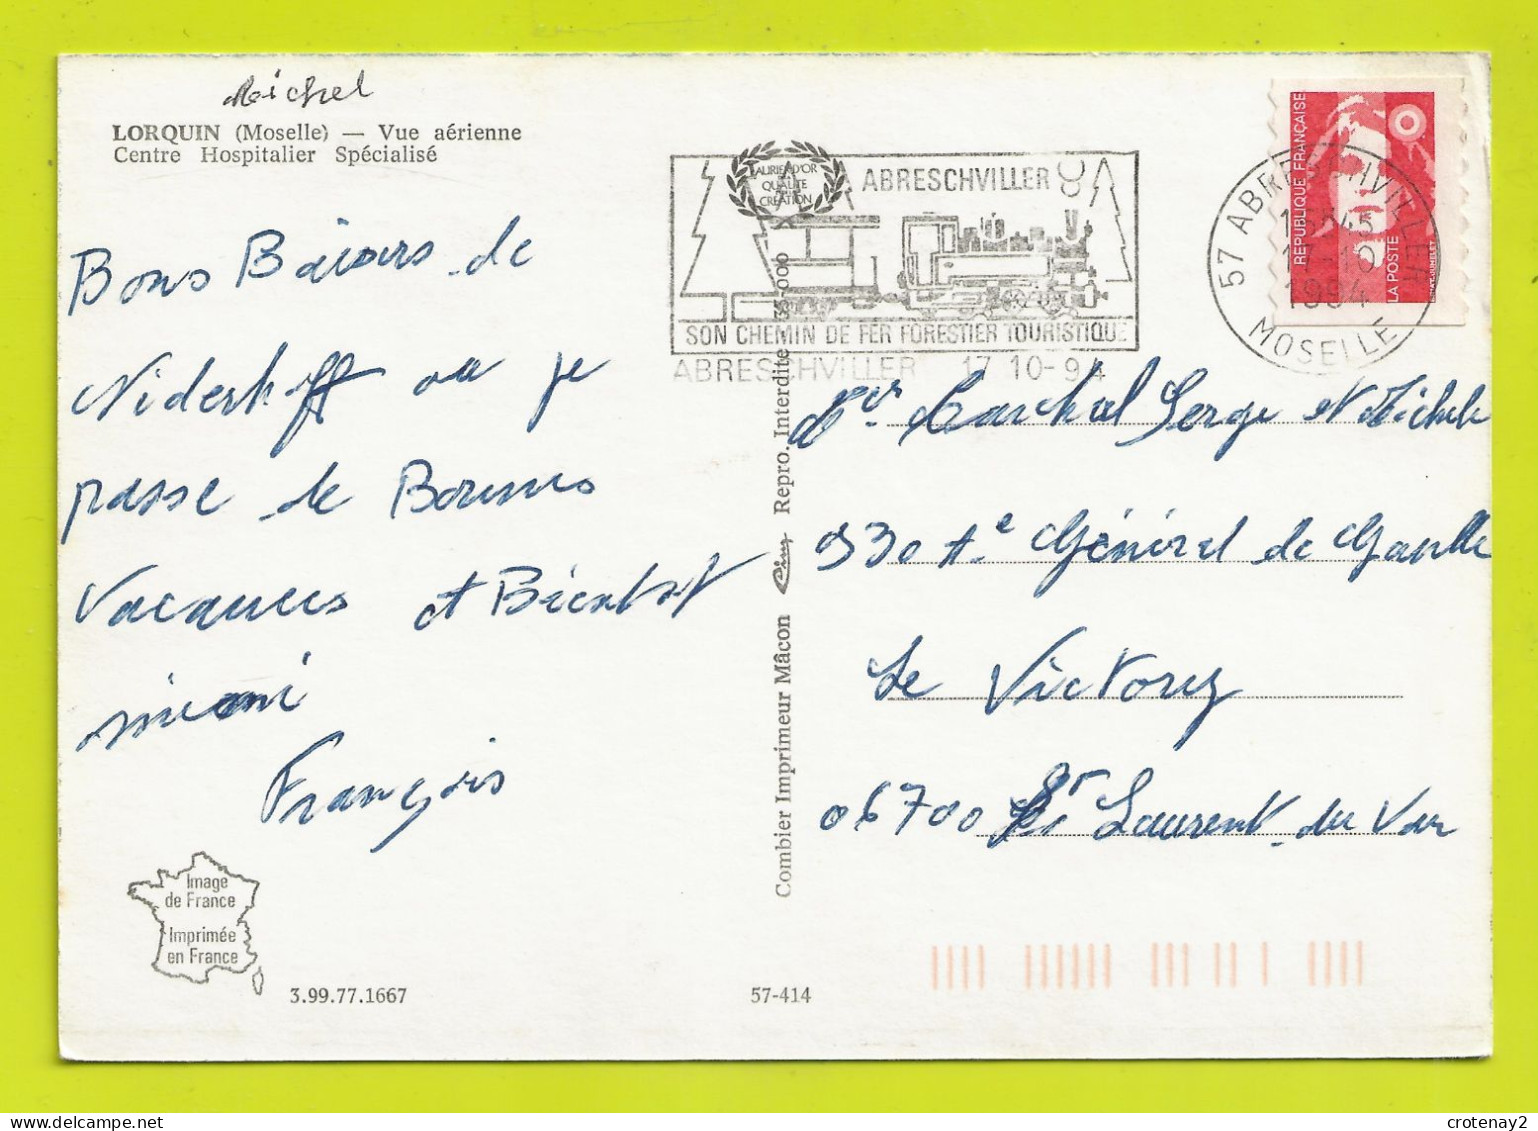 Michel
LORQUIN (Moselle) — Vue aérienne
Centre Hospitalier Spécialisé
Bons Baisers de
Niderhoff ou je
passe de Bonnes
Vacances et Bientot
François
Image
de France
Imprimée
en France
3.99.77.1667
57-414
Combier Imprimeur Mâcon
Repro. Interdite
LAURIER D'OR
QUALITE
CREATION
ABRESCHVILLER
SON CHEMIN DE FER FORESTIER TOURISTIQUE
ABRESCHVILLER 17 10-94
57 ABRESCHVILLER
17-10
1994
MOSELLE
REPUBLIQUE FRANÇAISE
LA POSTE
Serge et Michele
330 Ae Général de Gaulle
Le Victory
06700 St Laurent du Var
crotenay2